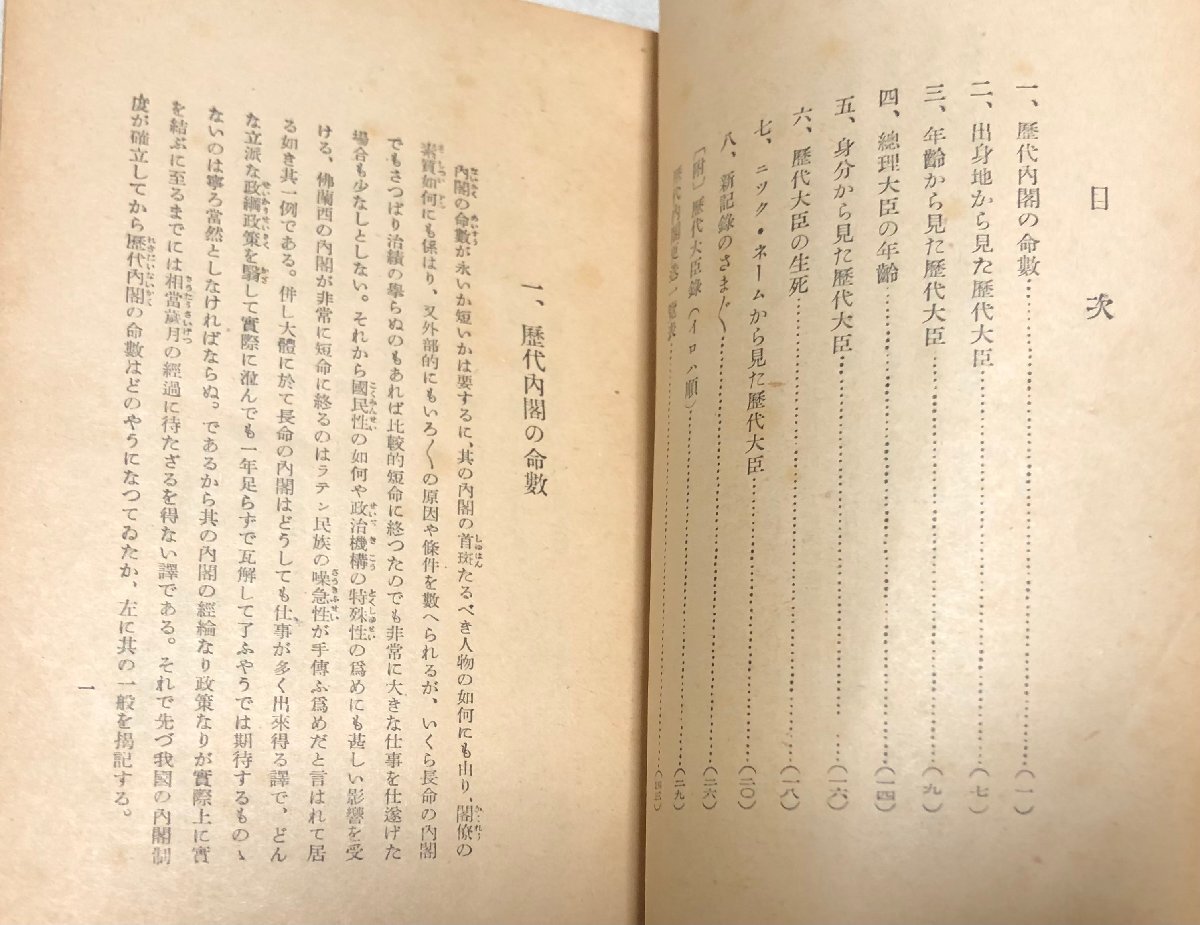 目次
一、歷代內閣の命數……………………(一)
二、出身地から見た歷代大臣……………………(七)
三、年齡から見た歷代大臣……………………(九)
四、總理大臣の年齡……………………(一四)
五、身分から見た歷代大臣……………………(一六)
六、歷代大臣の生死……………………(一八)
七、ニツク・ネームから見た歷代大臣……………………(二〇)
八、新記錄のさま〴〵……………………(二六)
〔附〕歷代大臣錄(イロハ順)……………………(二九)
歷代內閣更迭一覽表……………………(四三)
一、歷代內閣の命數
內閣の命數が永いか短いかは要するに、其の內閣の首班たるべき人物の如何にも由り、閣僚の
素質如何にも係はり、又外部的にもいろ〳〵の原因や條件を數へられるが、いくら長命の內閣
でもさつぱり治績の擧らぬのもあれば比較的短命に終つたのでも非常に大きな仕事を仕遂げた
場合も少なしとしない。それから國民性の如何や政治機構の特殊性の爲めにも甚しい影響を受
ける、佛蘭西の內閣が非常に短命に終るのはラテン民族の噪急性が手傳ふ爲めだと言はれて居
る如き其一例である。併し大體に於て長命の內閣はどうしても仕事が多く出來得る譯で、どん
な立派な政綱政策を翳して實際に涖んでも一年足らずで瓦解して了ふやうでは期待するものゝ
ないのは寧ろ當然としなければならぬ。であるから其の內閣の經綸なり政策なりが實際上に實
を結ぶに至るまでには相當歲月の經過に待たざるを得ない譯である。それで先づ我國の內閣制
度が確立してから歷代內閣の命數はどのやうになつてゐたか、左に其の一般を揭記する。
一